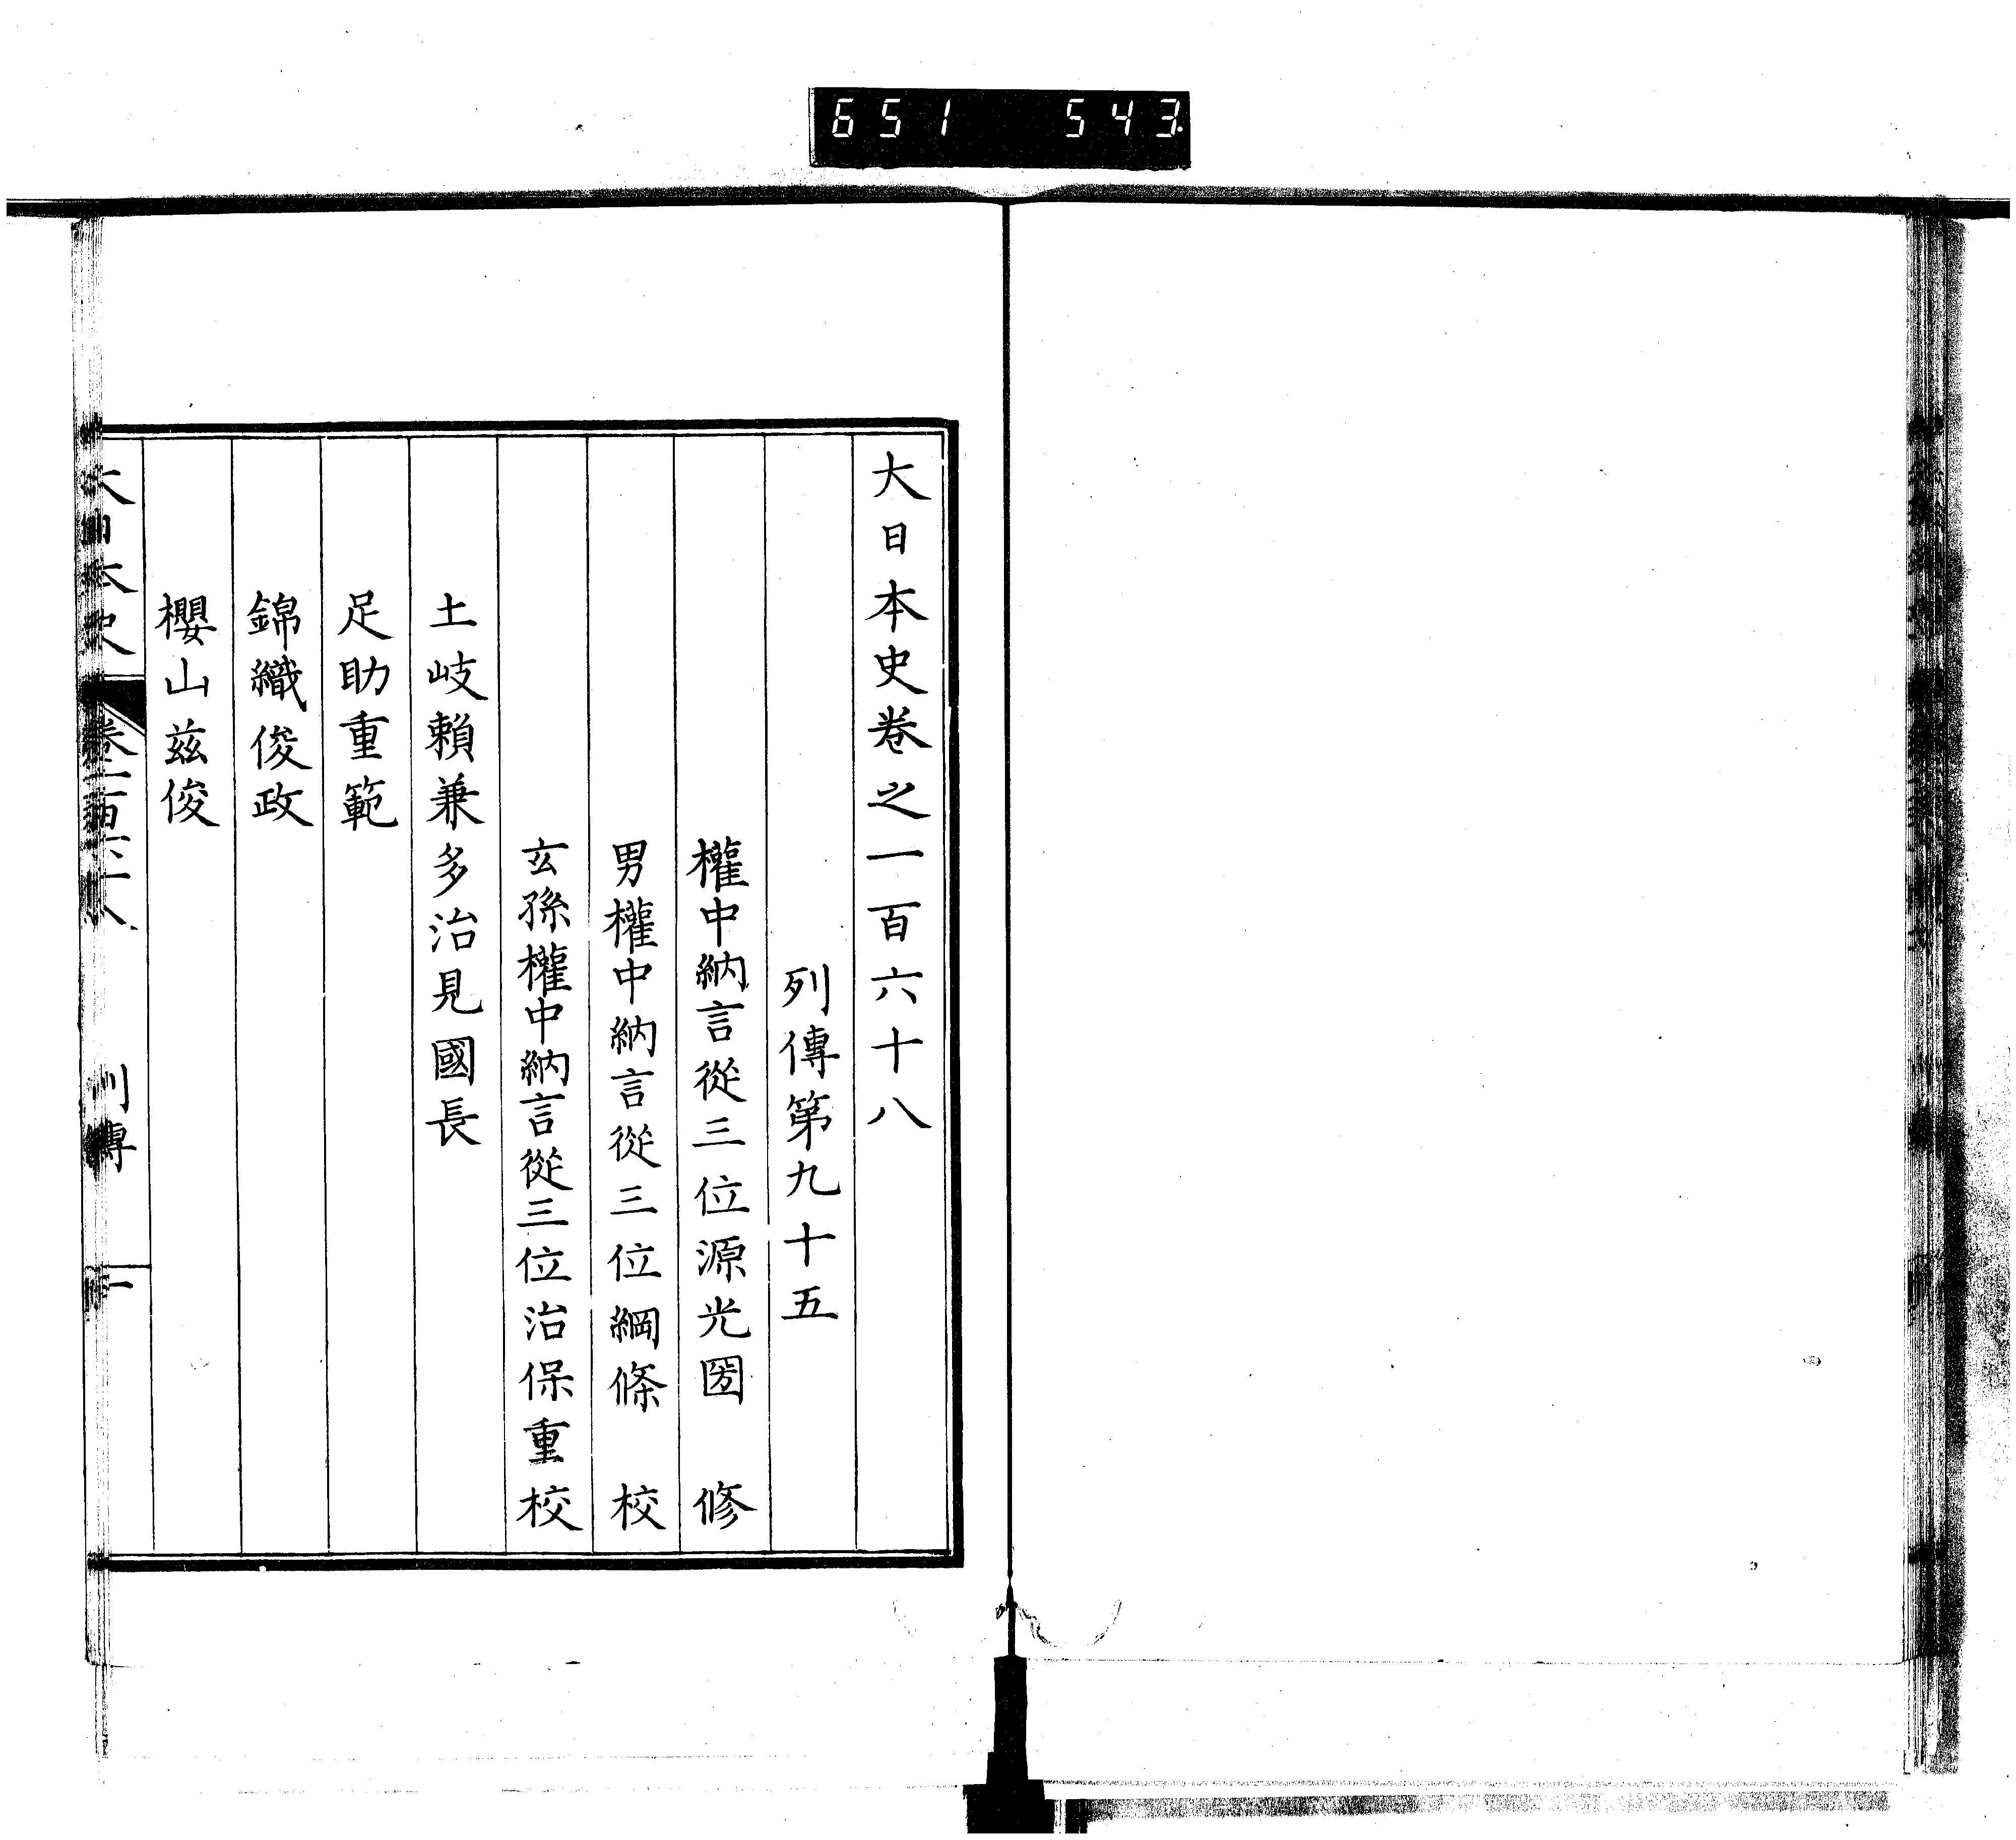 651 543
大日本史卷之一百六十八
列傳第九十五
權中納言從三位源光圀 修
男權中納言從三位綱條 校
玄孫權中納言從三位治保重校
土岐賴兼多治見國長
足助重範
錦織俊政
櫻山茲俊
大日本史 卷一百六十八 列傳 一